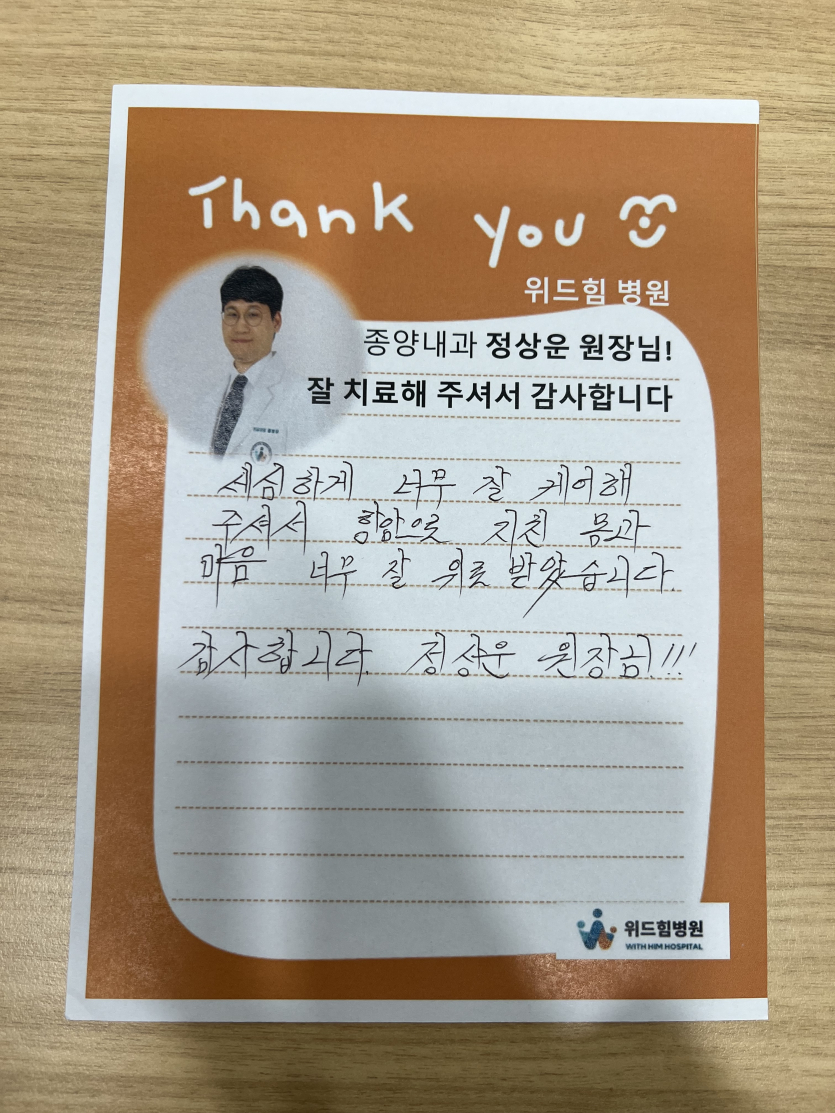 Thank you
위드힘 병원
종양내과 정상운 원장님!
잘 치료해 주셔서 감사합니다
세심하게 너무 잘 케어해
주셔서 항암으로 지친 몸과
마음 너무 잘 위로 받았습니다.
감사합니다. 정상운 원장님!!!
위드힘병원
WITH HIM HOSPITAL